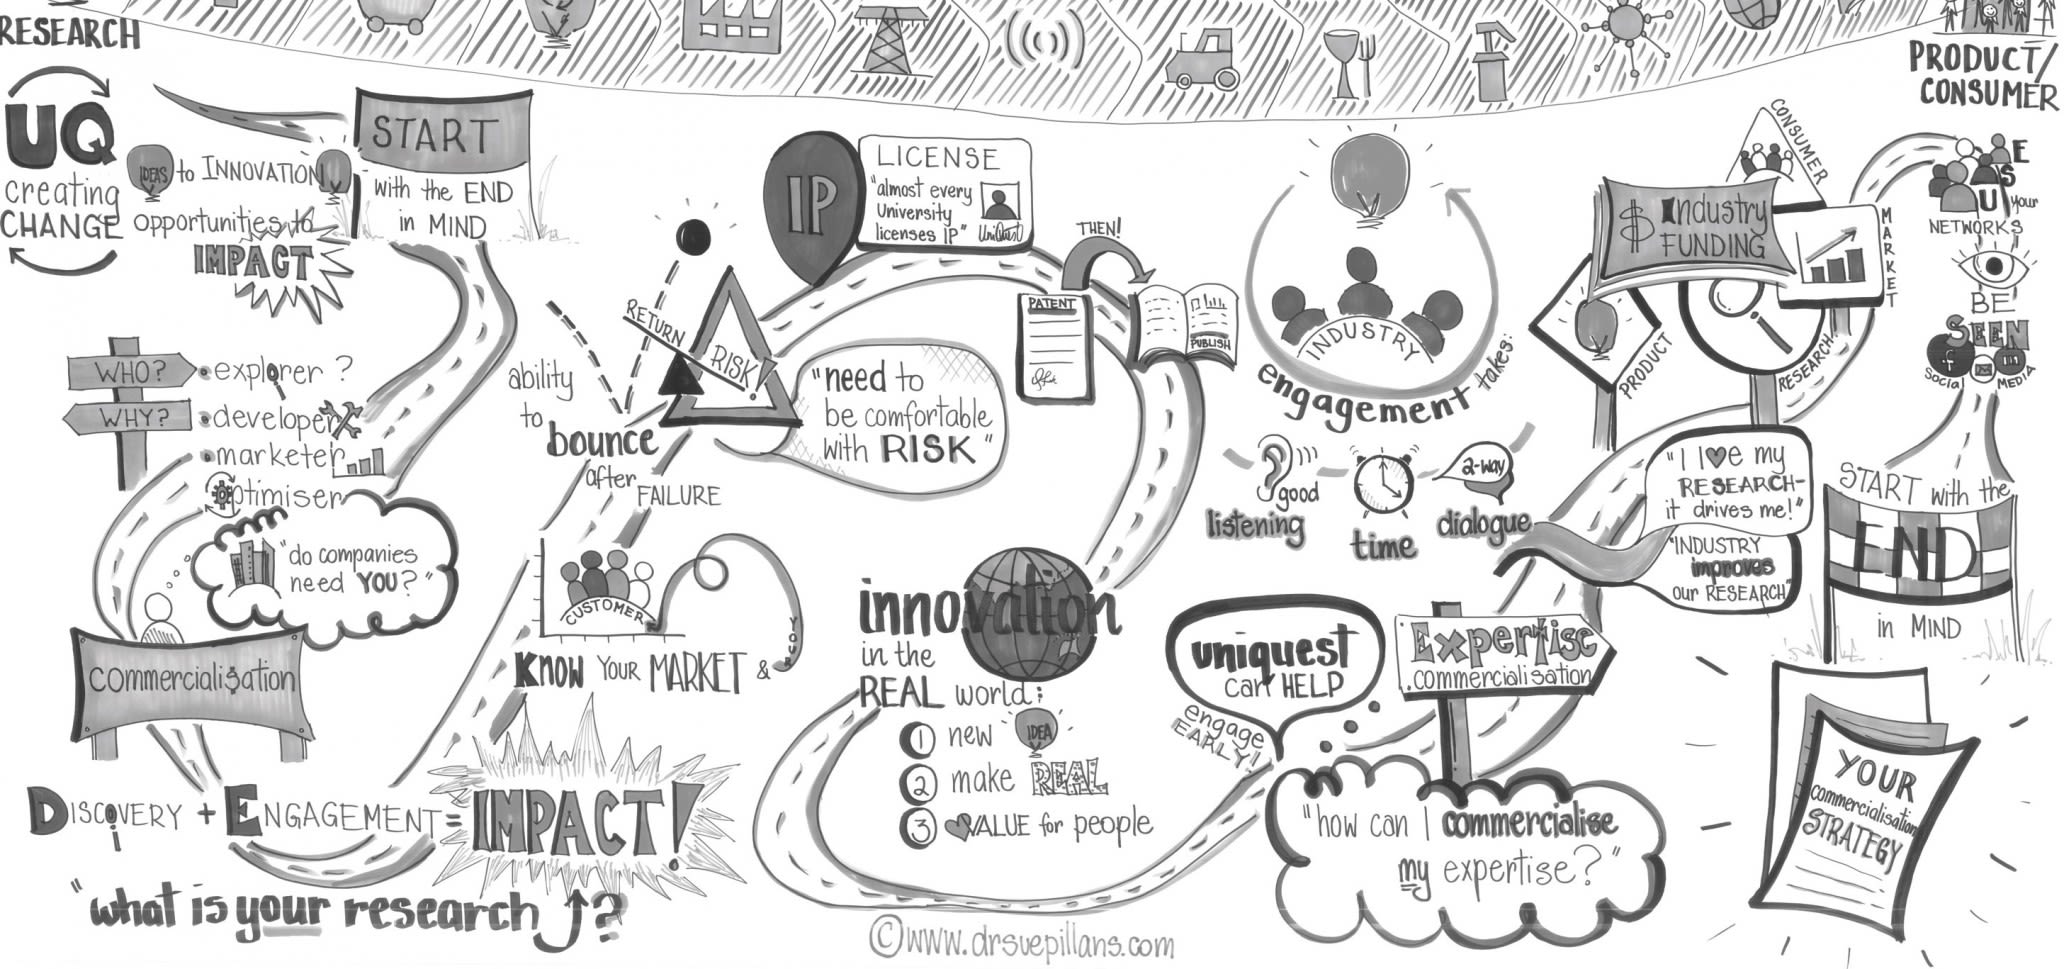 RESEARCH
PRODUCT/
CONSUMER
UQ
creating
CHANGE
IDEAS to INNOVATION
opportunities to
IMPACT
START
with the END
in MIND
WHO?
WHY?
explorer ?
developer
marketer
optimiser
"do companies
need YOU?"
commercialisation
DISCOVERY + ENGAGEMENT = IMPACT!
"what is your research ?
ability
to
bounce
after
FAILURE
RETURN
RISK!
"need to
be comfortable
with RISK"
CUSTOMER
KNOW YOUR MARKET &
YOUR
IP
LICENSE
"almost every
University
licenses IP"
UniQuest
THEN!
PATENT
PUBLISH
innovation
in the
REAL world:
1 new IDEA
2 make REAL
3 VALUE for people
INDUSTRY
engagement takes:
good
listening
time
2-way
dialogue
uniquest
can HELP
engage
EARLY!
Expertise
commercialisation
"how can I commercialise
my expertise?"
CONSUMER
$ Industry
FUNDING
MARKET
PRODUCT
RESEARCH
"I l♥ve my
RESEARCH-
it drives me!"
"INDUSTRY
improves
our RESEARCH"
USE
your
NETWORKS
BE
SEEN
f
in
Social
MEDIA
START with the
END
in MIND
YOUR
commercialisation
STRATEGY
©www.drsuepillans.com